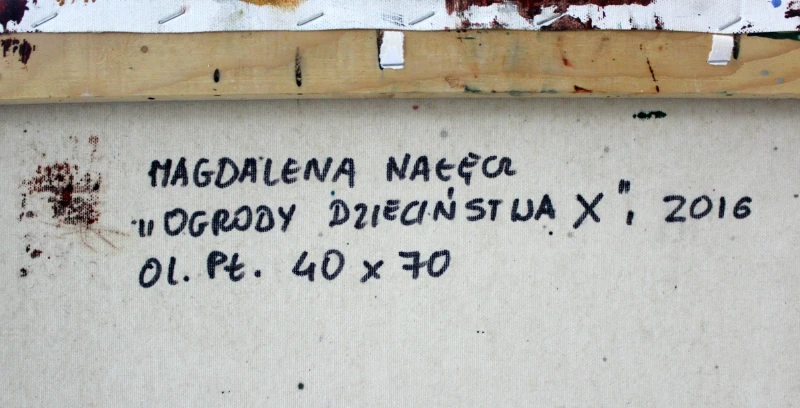 MAGDALENA NAŁĘCZ
„OGRODY DZIECIŃSTWA X", 2016
Ol. Pł. 40 x 70